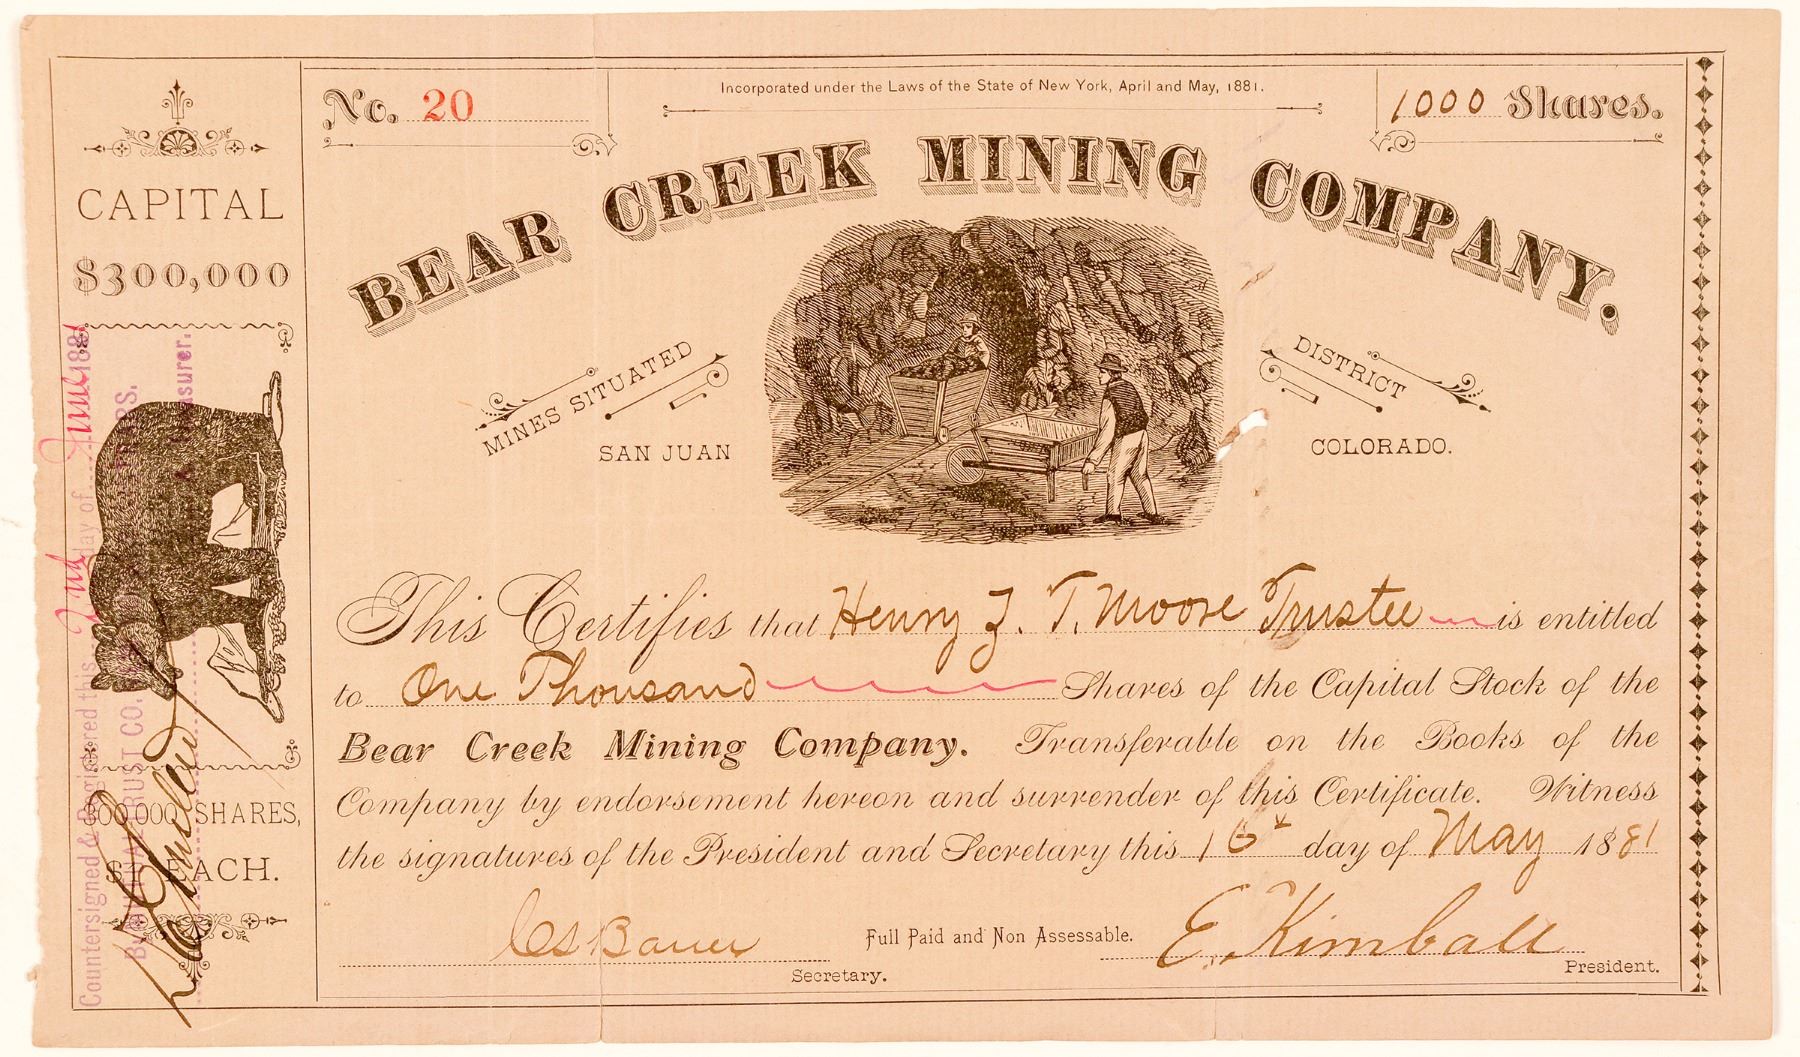 No. 20
Incorporated under the Laws of the State of New York, April and May, 1881.
1000 Shares.
BEAR CREEK MINING COMPANY.
MINES SITUATED
SAN JUAN
DISTRICT
COLORADO.
CAPITAL
$300,000
300,000 SHARES,
$1 EACH.
Countersigned & Registered this 2nd day of June 1881
TRUST CO.
Treasurer.
This Certifies that Henry J. T. Moore Trustee is entitled
to One Thousand Shares of the Capital Stock of the
Bear Creek Mining Company. Transferable on the Books of the
Company by endorsement hereon and surrender of this Certificate. Witness
the signatures of the President and Secretary this 16 day of May 1881
Bauer
Full Paid and Non Assessable.
E. Kimball
Secretary.
President.